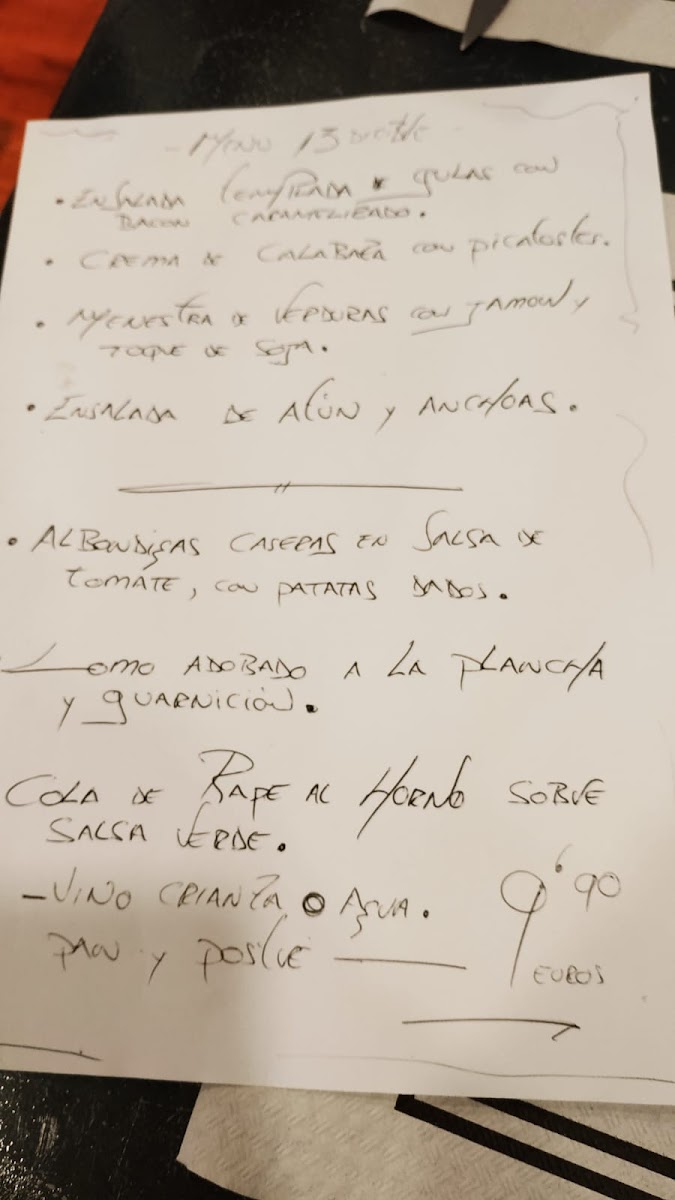 - MENÚ 13 DICIBLE -
• ENSALADA TEMPLADA * GULAS CON
BACON CARAMELIZADO.
• CREMA DE CALABAZA CON PICATOSTES.
• MENESTRA DE VERDURAS CON JAMON Y
TOQUE DE SOJA.
• ENSALADA DE ATÚN Y ANCHOAS.
• ALBONDIGAS CASERAS EN SALSA DE
TOMATE, CON PATATAS DADOS.
LOMO ADOBADO A LA PLANCHA
Y GUARNICIÓN.
COLA DE RAPE AL HORNO SOBRE
SALSA VERDE.
- VINO CRIANZA O AGUA.
PAN Y POSTRE — 9'90
EUROS